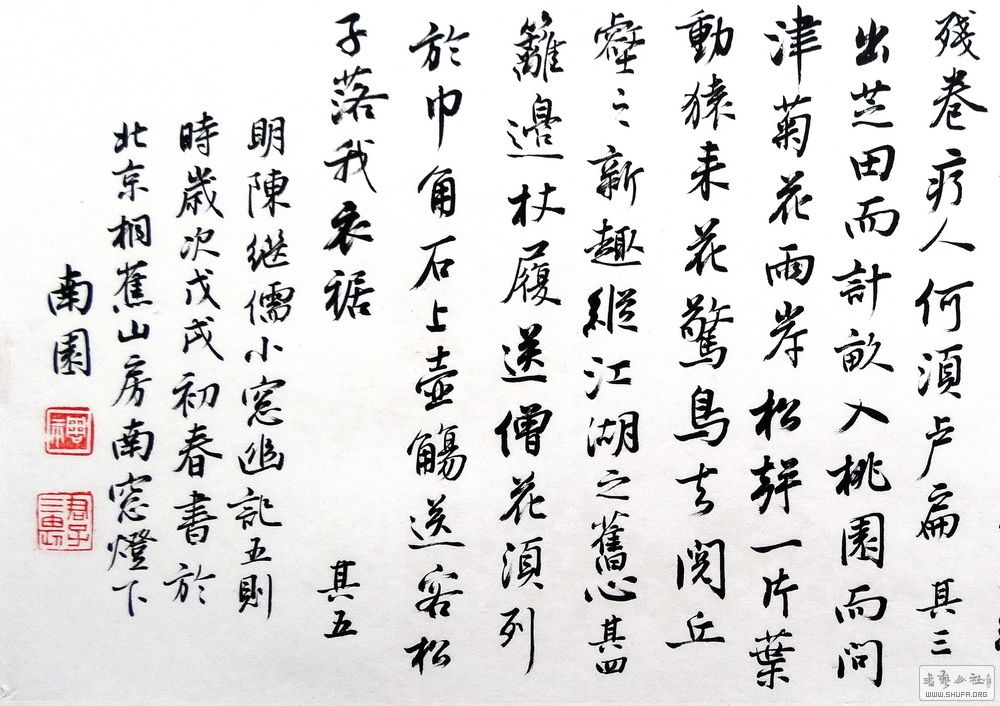 殘卷疗人何須卢扁 其三
出芝田而計畝入桃園而問
津菊花兩岸松聲一片葉
動猿来花驚鳥去閲丘
壑之新趣縱江湖之舊心 其四
籬邊杖履送僧花須列
於巾角石上壺觴送客松
子落我衣裾 其五
明陳继儒小窓幽記五則
時歲次戊戌初春書於
北京相蕉山房南窓燈下
南園
君子三思
书艺公社
WWW.SHUFA.ORG